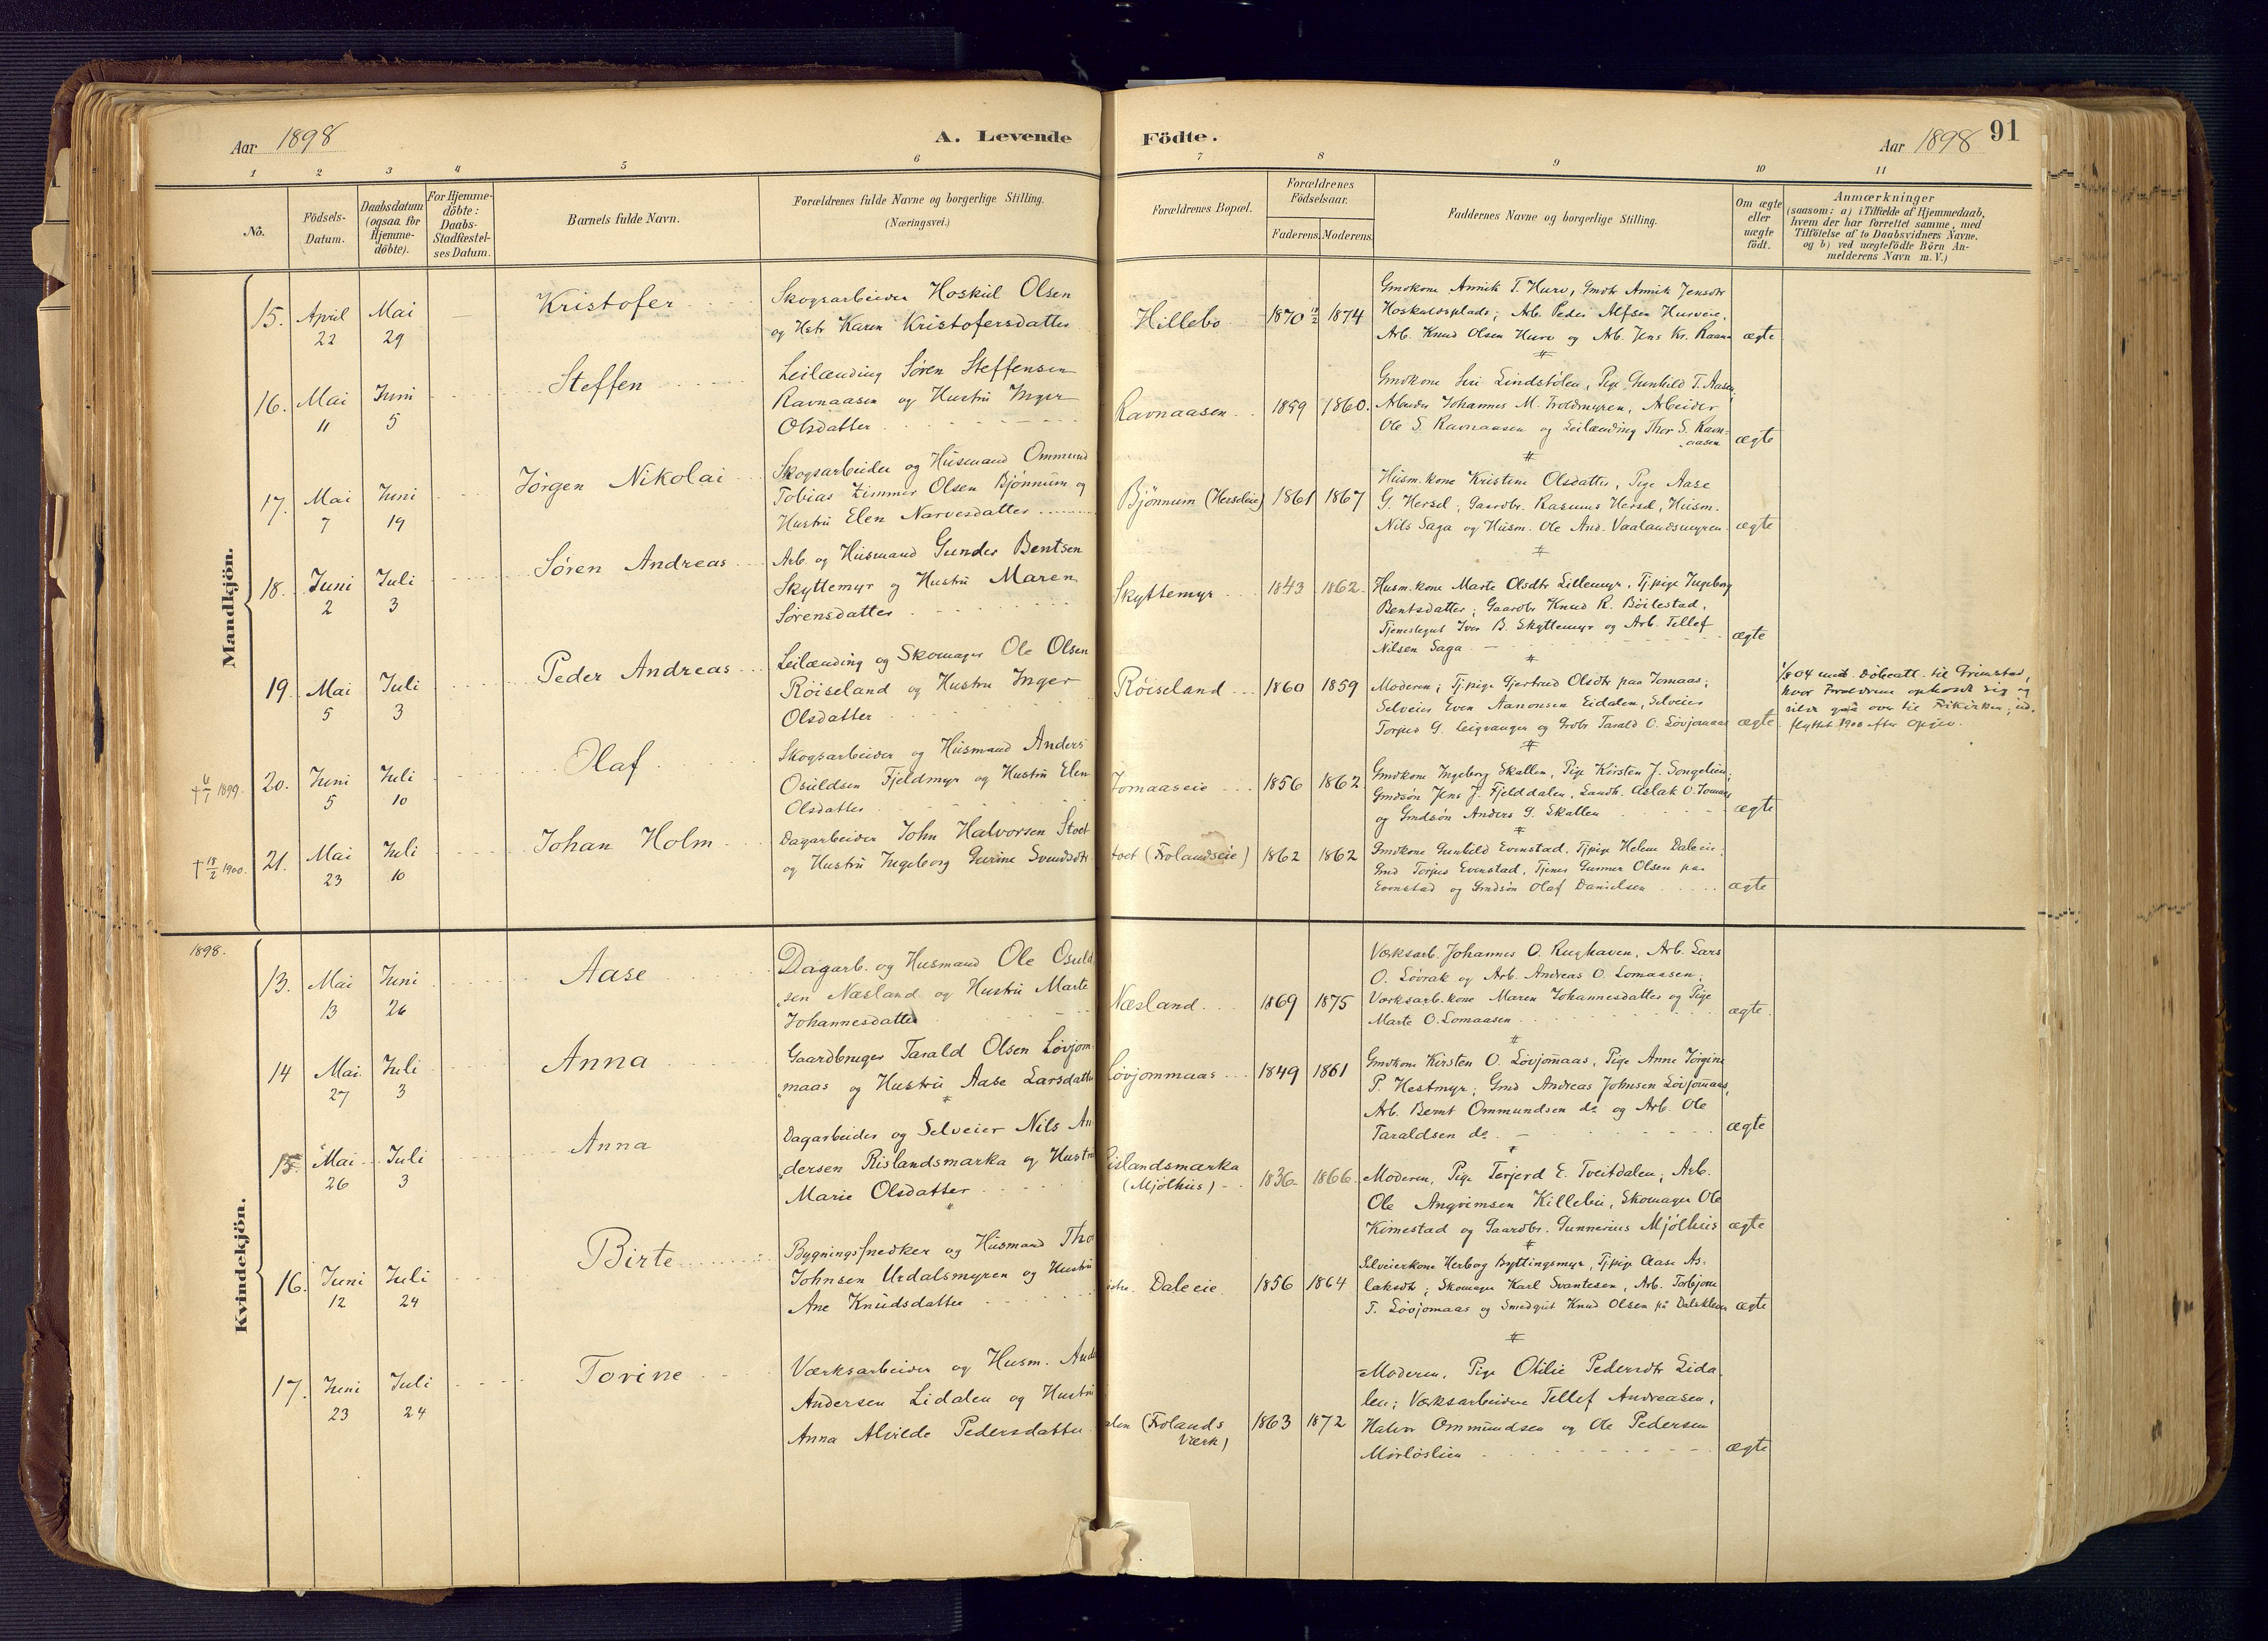 Aar 1898
A. Levende
Födte.
Aar 1898
91
1 2 3 4 5 6 7 8 9 10 11
No.
Födsels-
Datum.
Daabsdatum
(ogsaa for
Hjemme-
döbte).
For Hjemme-
döbte:
Daabs-
Stadfæstel-
ses Datum.
Barnets fulde Navn.
Forældrenes fulde Navne og borgerlige Stilling.
(Næringsvei.)
Forældrenes Bopæl.
Forældrenes
Födselsaar.
Faderens.
Moderens.
Faddernes Navne og borgerlige Stilling.
Om ægte
eller
uægte
födt.
Anmærkninger
(saasom: a) i Tilfælde af Hjemmedaab,
hvem der har forrettet samme, med
Tilföielse af to Daabsvidners Navne,
og b) ved uægtefödte Börn An-
melderens Navn m. V.)
Mandkjön.
15. April 22 Mai 29
Kristofer
Skogsarbeider Hoskul Olsen
og Hstr Karen Kristofersdatter
Hillebo 1870 1874
Gmdkone Annik T. Hurv, Gmdtr Annik Jensdtr
Hoskuldsplads; Arb. Peder Alfsen Husveie,
Arb. Knud Olsen Hurv og Arb. Jens Kr. Raana
ægte
16. Mai 11 Juni 5
Steffen
Leilænding Søren Steffensen
Ravnaasen og Hustru Inger
Olsdatter
Ravnaasen 1859 1860.
Gmdkone Siri Lindstølen, Pige Gunhild T. Aasen;
Arbeider Johannes M. Troldmyren, Arbeider
Ole S. Ravnaasen og Leilænding Thor S. Ravn=
aasen
ægte
17. Mai 7 Juni 19
Jörgen Nikolai
Skogsarbeider og Husmand Ommund
Tobias Zimmer Olsen Bjönnum og
Hustru Elen Narvesdatter
Bjönnum (Herseleie) 1861 1867
Husm.kone Kristine Olsdatter, Pige Aase
G. Hersel; Gaardbr. Rasmus Hersel, Husm.
Nils Saga og Husm. Ole And. Vaalandsmyren
ægte
18. Juni 2 Juli 3
Søren Andreas
Arb. og Husmand Gunder Bentsen
Skyttemyr og Hustru Maren
Sørensdatter
Skyttemyr 1843 1862.
Husm.kone Marte Olsdtr Lillemyr, Tj.pige Ingeborg
Bentsdatter; Gaardbr Knud R. Böilestad,
Tjenestegut Iver B. Skyttemyr og Arb. Tellef
Nilsen Saga
ægte
19. Mai 5 Juli 3
Peder Andreas
Leilænding og Skomager Ole Olsen
Röiseland og Hustru Inger
Olsdatter
Röiseland 1860 1859
Moderen; Tj.pige Gjertrud Olsdtr paa Jomaas;
Selveier Even Aanonsen Eidalen, Selveier
Torjus G. Leigvanger og Grdbr Tarald O. Lövjomaas
ægte
1/8 04 uds. Döbeatt. til Grimstad,
hvor Forældrene opholdt sig og
vilde gaa over til Frikirken; ud-
flyttet 1900 efter Opgiv.
† 6/1 1899.
20. Juni 5 Juli 10
Olaf
Skogsarbeider og Husmand Anders
Osuldsen Fjeldmyr og Hustru Elen
Olsdatter
Jomaaseie 1856 1862
Gmdkone Ingeborg Skallen, Pige Kirsten J. Songeleien;
Gmdsøn Jens J. Fjelddalen, Landh. Aslak O. Jomaas
og Gmdsøn Anders G. Skallen
ægte
† 18/2 1900.
21. Mai 23 Juli 10
Johan Holm
Dagarbeider John Halvorsen Stoet
og Hustru Ingeborg Gurine Svendsdtr
toet (Frolandseie) 1862 1862
Gmdkone Gunhild Evenstad, Tjpige Helene Daleeie;
Gmd Torjus Evenstad, Tjener Gunner Olsen paa
Evenstad og Gmdsøn Olaf Danielsen
ægte
Kvindekjön.
1898.
13. Mai 13 Juni 26
Aase
Dagarb. og Husmand Ole Osuld-
sen Næsland og Hustru Marte
Johannesdatter
Næsland 1869 1875
Værksarb. Johannes O. Rughaven, Arb. Lars
O. Lövrak og Arb. Andreas O. Lomaasen;
Værksarb.kone Maren Johannesdatter og Pige
Marte O. Lomaasen
ægte
14 Mai 27 Juli 3
Anna
Gaardbruger Tarald Olsen Lövjom-
maas og Hustru Aase Larsdatter
Lövjommaas 1849 1861
Gmdkone Kirsten O. Lövjomaas, Pige Anne Jörgine
P. Hestmyr; Gmd Andreas Johnsen Lövjomaas,
Arb. Bernt Ommundsen do og Arb. Ole
Taraldsen do.
ægte
15. Mai 26 Juli 3
Anna
Dagarbeider og Selveier Nils An-
dersen Rislandsmarka og Hustru
Marie Olsdatter
Rislandsmarka
(Mjölhus) 1836 1866
Moderen, Pige Terjerd E. Tveitdalen; Arb.
Ole Angrimsen Killebu, Skomager Ole
Kimestad og Gaardbr. Gunnerius Mjölhus
ægte
16. Juni 12 Juli 24
Birte
Bygningssnedker og Husmand Tho
Johnsen Urdalsmyren og Hustru
Ane Knudsdatter
Daleeie 1856 1864
Selveierkone Herborg Byttingsmyr, Tjpige Aase As-
laksdtr; Skomager Karl Svantesen, Arb. Torbjørn
T. Lövjomaas og Smedgut Knud Olsen på Dalskleven
ægte
17. Juni 23 Juli 24
Torine
Værksarbeider og Husm. And
Andersen Lidalen og Hustru
Anna Alvilde Pedersdatter
alen (Frolands
Værk) 1863 1872
Moderen, Pige Otilie Pedersdtr Lida-
len; Værksarbeiderne Tellef Andreasen,
Halvor Ommundsen og Ole Pedersen
Mörlöslien
ægte